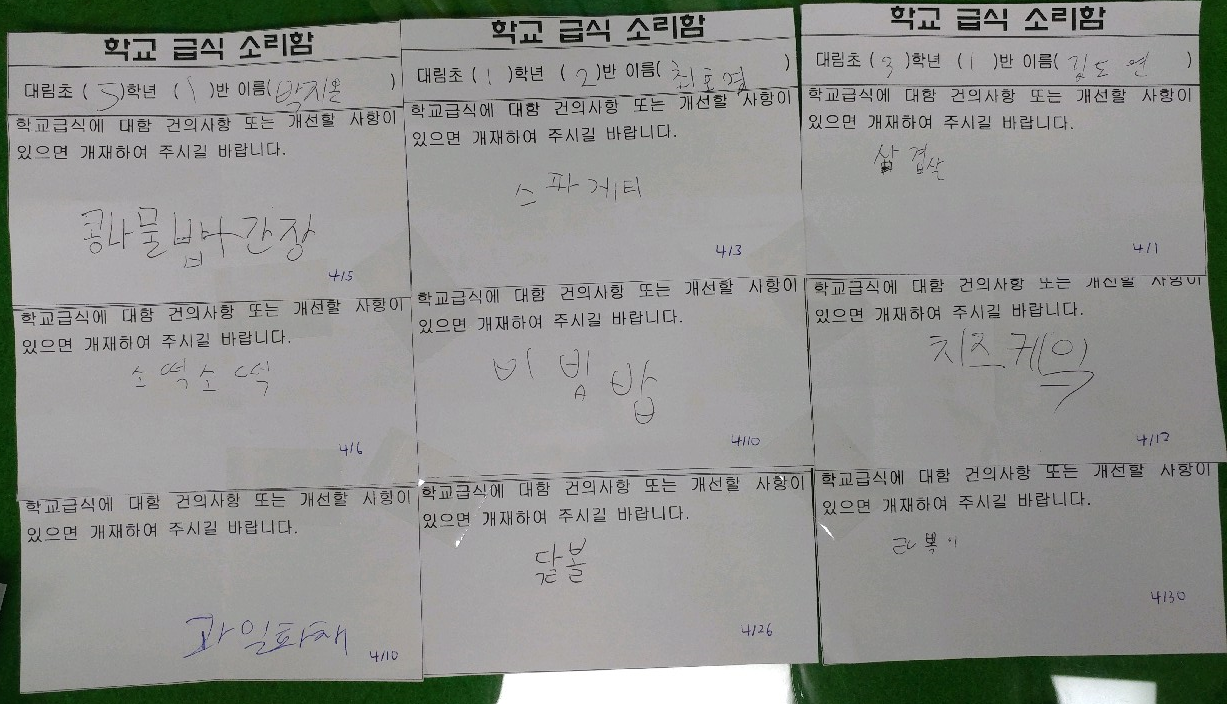 학교 급식 소리함
대림초 ( 5 )학년 ( 1 )반 이름( 박지온 )
학교급식에 대함 건의사항 또는 개선할 사항이
있으면 개재하여 주시길 바랍니다.
콩나물밥 간장
4/5
학교급식에 대함 건의사항 또는 개선할 사항이
있으면 개재하여 주시길 바랍니다.
소떡소떡
4/6
학교급식에 대함 건의사항 또는 개선할 사항이
있으면 개재하여 주시길 바랍니다.
과일화채
4/10
학교 급식 소리함
대림초 ( 1 )학년 ( 2 )반 이름( )
학교급식에 대함 건의사항 또는 개선할 사항이
있으면 개재하여 주시길 바랍니다.
스파게티
4/3
학교급식에 대함 건의사항 또는 개선할 사항이
있으면 개재하여 주시길 바랍니다.
비빔밥
4/10
학교급식에 대함 건의사항 또는 개선할 사항이
있으면 개재하여 주시길 바랍니다.
4/26
학교 급식 소리함
대림초 ( 3 )학년 ( 1 )반 이름( 김도연 )
학교급식에 대함 건의사항 또는 개선할 사항이
있으면 개재하여 주시길 바랍니다.
삼겹살
4/1
학교급식에 대함 건의사항 또는 개선할 사항이
있으면 개재하여 주시길 바랍니다.
치즈케익
4/12
학교급식에 대함 건의사항 또는 개선할 사항이
있으면 개재하여 주시길 바랍니다.
라볶이
4/30